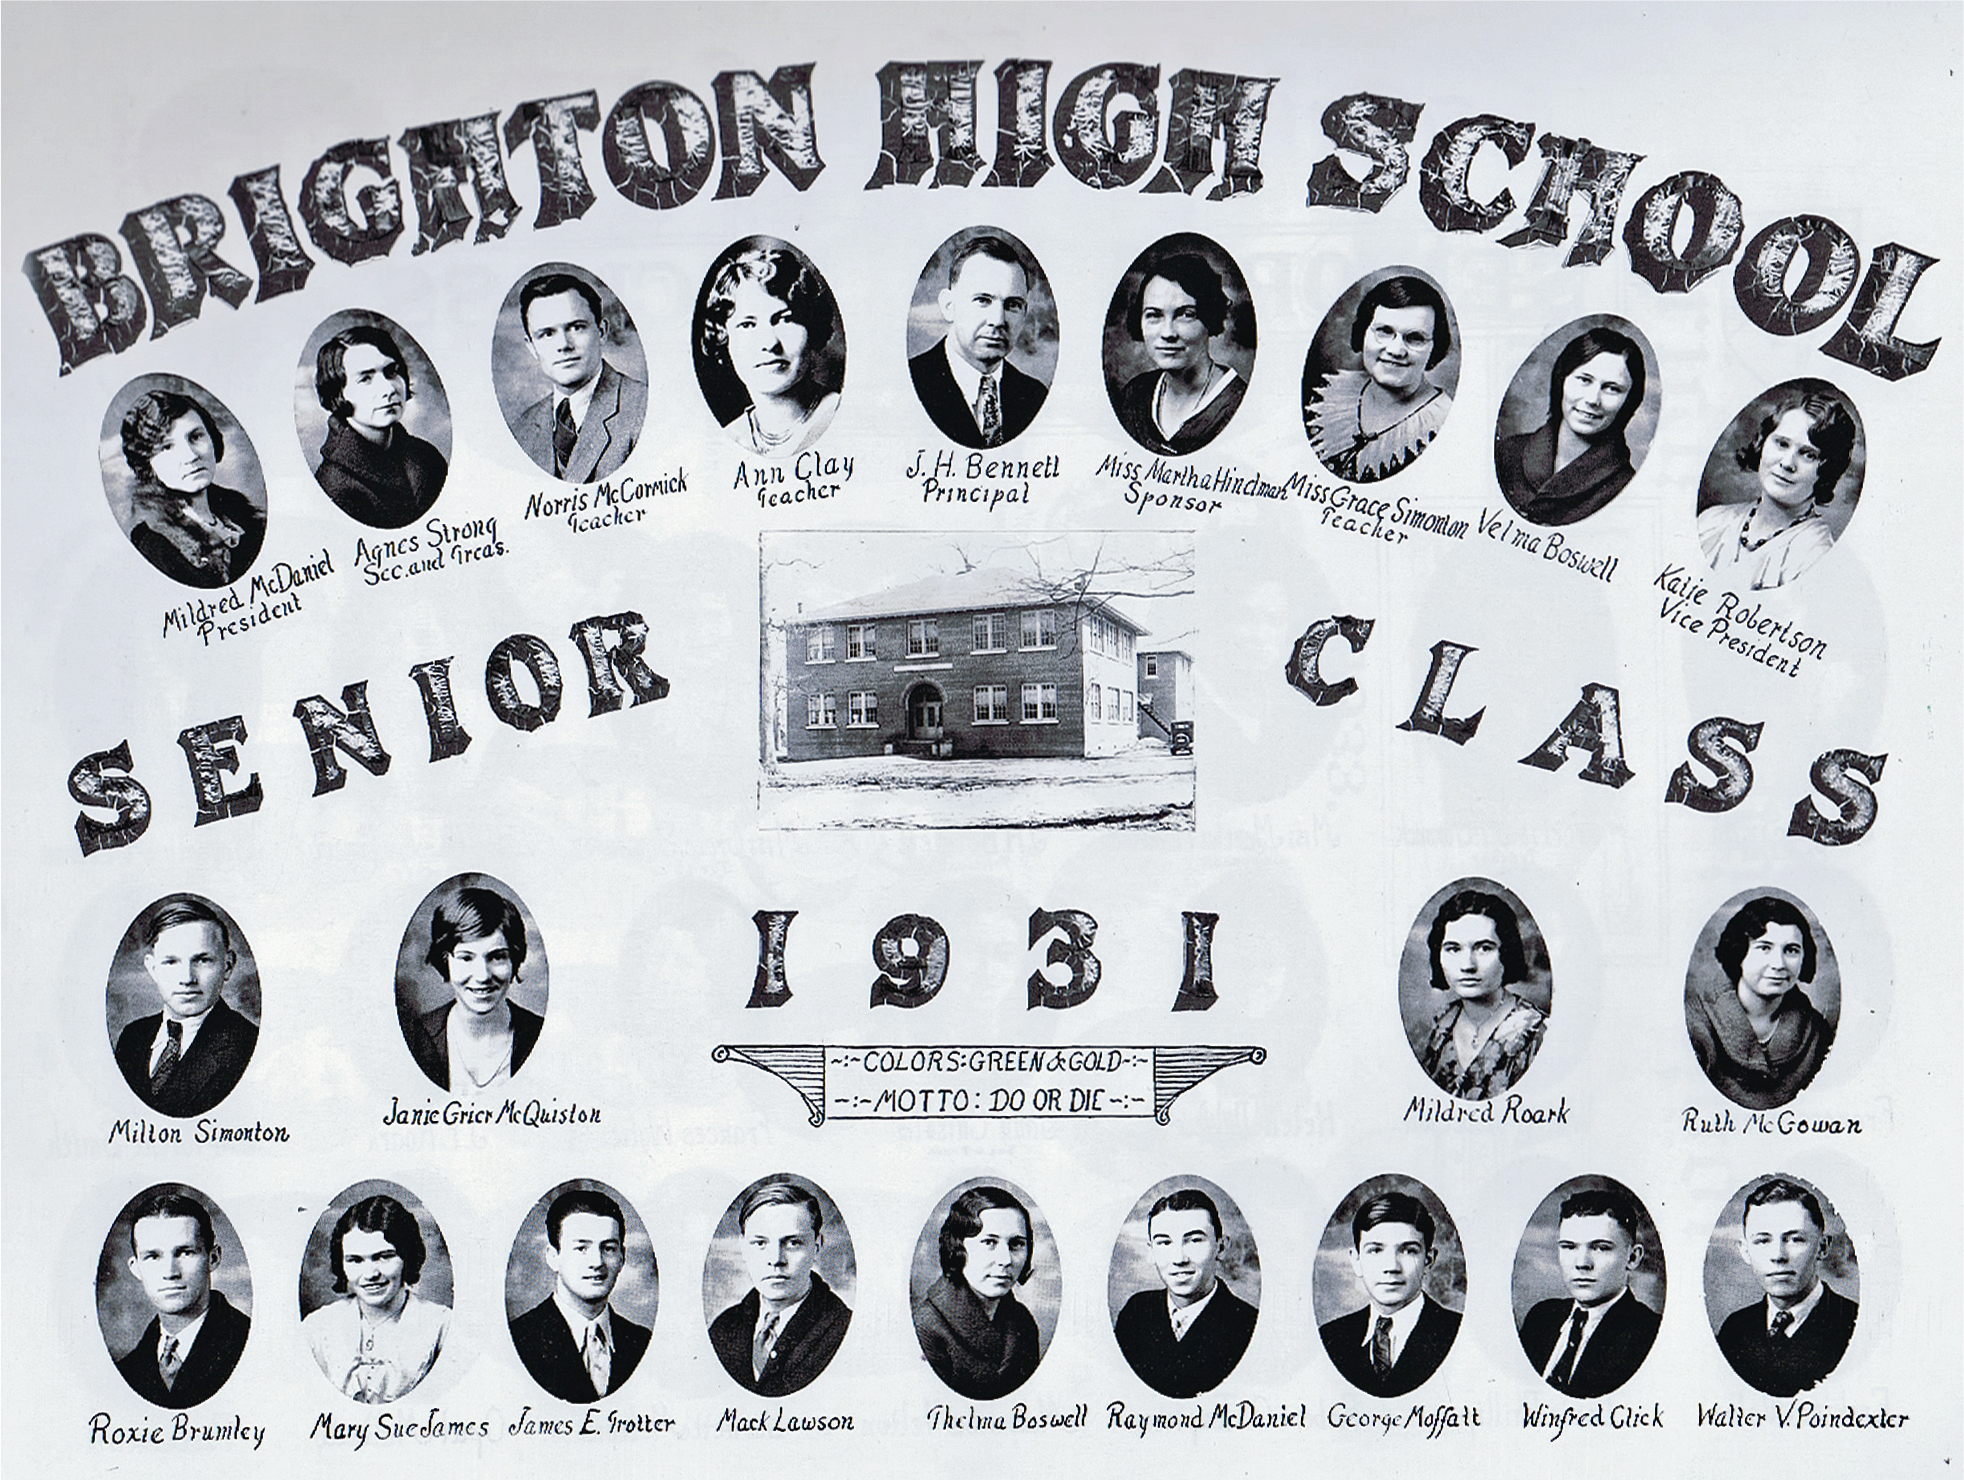 BRIGHTON HIGH SCHOOL
Mildred McDaniel
President
Agnes Strong
Sec. and Treas.
Norris McCormick
Teacher
Ann Clay
Teacher
J. H. Bennett
Principal
Miss Martha Hindman
Sponsor
Miss Grace Simonton
Teacher
Velma Boswell
Katie Robertson
Vice President
SENIOR CLASS
1931
-:-COLORS:GREEN & GOLD-:-
-:-MOTTO: DO OR DIE-:-
Milton Simonton
Janie Grier McQuiston
Mildred Roark
Ruth McGowan
Roxie Brumley
Mary Sue James
James E. Trotter
Mack Lawson
Thelma Boswell
Raymond McDaniel
George Moffatt
Winfred Click
Walter V. Poindexter